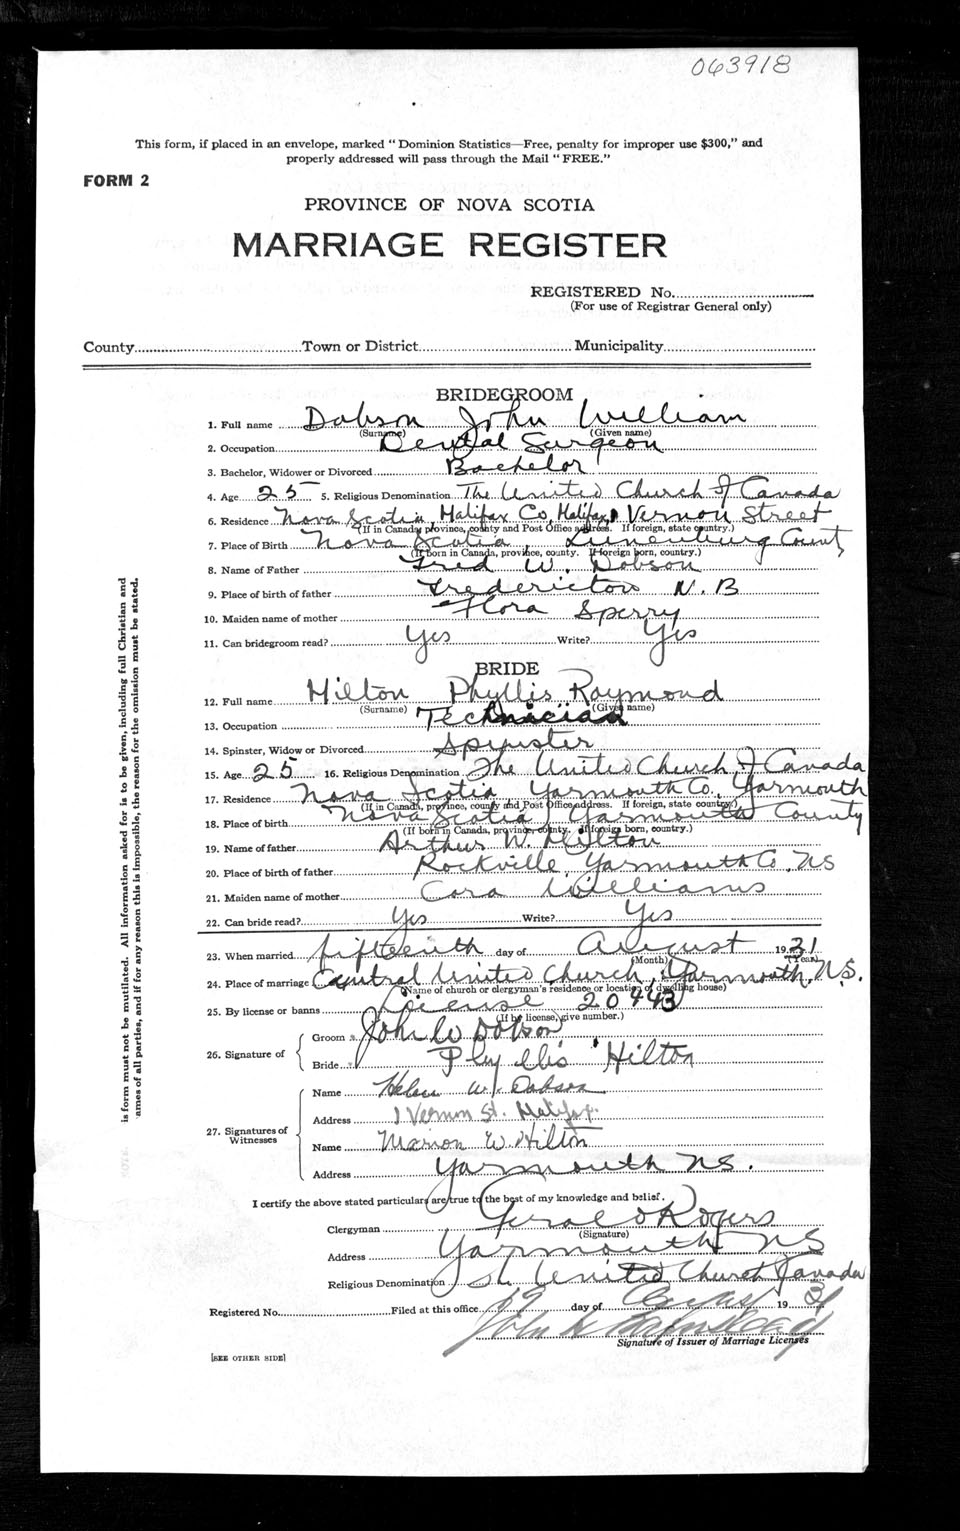 063918
This form, if placed in an envelope, marked "Dominion Statistics—Free, penalty for improper use $300," and
properly addressed will pass through the Mail "FREE."
FORM 2
PROVINCE OF NOVA SCOTIA
MARRIAGE REGISTER
REGISTERED No.
(For use of Registrar General only)
County Town or District Municipality
BRIDEGROOM
1. Full name Dobson John William
(Surname) (Given name)
2. Occupation Dental Surgeon
3. Bachelor, Widower or Divorced Bachelor
4. Age 25 5. Religious Denomination The United Church of Canada
6. Residence Nova Scotia, Halifax Co, Halifax, 1 Vernon Street
(If in Canada, province, county and Post Office address. If foreign, state country.)
7. Place of Birth Nova Scotia, Lunenburg County
(If born in Canada, province, county. If foreign born, country.)
8. Name of Father Fred W. Dobson
9. Place of birth of father Fredericton N.B
10. Maiden name of mother Flora Sperry
11. Can bridegroom read? Yes Write? Yes
BRIDE
12. Full name Hilton Phyllis Raymond
(Surname) (Given name)
13. Occupation Technician
14. Spinster, Widow or Divorced Spinster
15. Age 25 16. Religious Denomination The United Church of Canada
17. Residence Nova Scotia Yarmouth Co., Yarmouth
(If in Canada, province, county and Post Office address. If foreign, state country.)
18. Place of birth Nova Scotia, Yarmouth County
(If born in Canada, province, county. If foreign born, country.)
19. Name of father Arthur W. Hilton
20. Place of birth of father Rockville, Yarmouth Co., NS
21. Maiden name of mother Cora Williams
22. Can bride read? Yes Write? Yes
23. When married fifteenth day of August 1931
(Month) (Year)
24. Place of marriage Central United Church, Yarmouth, N.S.
(Name of church or clergyman's residence or location of dwelling house)
25. By license or banns License 20443
(If by license, give number.)
26. Signature of
Groom John W Dobson
Bride Phyllis Hilton
27. Signatures of
Witnesses
Name Helen W. Dobson
Address 1 Vernon St. Halifax.
Name Marion W. Hilton
Address Yarmouth NS.
I certify the above stated particulars are true to the best of my knowledge and belief.
Clergyman Gerald Rogers
(Signature)
Address Yarmouth NS
Religious Denomination The United Church Canada
Registered No. Filed at this office 19 day of August 1931
John
Signature of Issuer of Marriage Licenses
[SEE OTHER SIDE]
is form must not be mutilated. All information asked for is to be given, including full Christian and
ames of all parties, and if for any reason this is impossible, the reason for the omission must be stated.